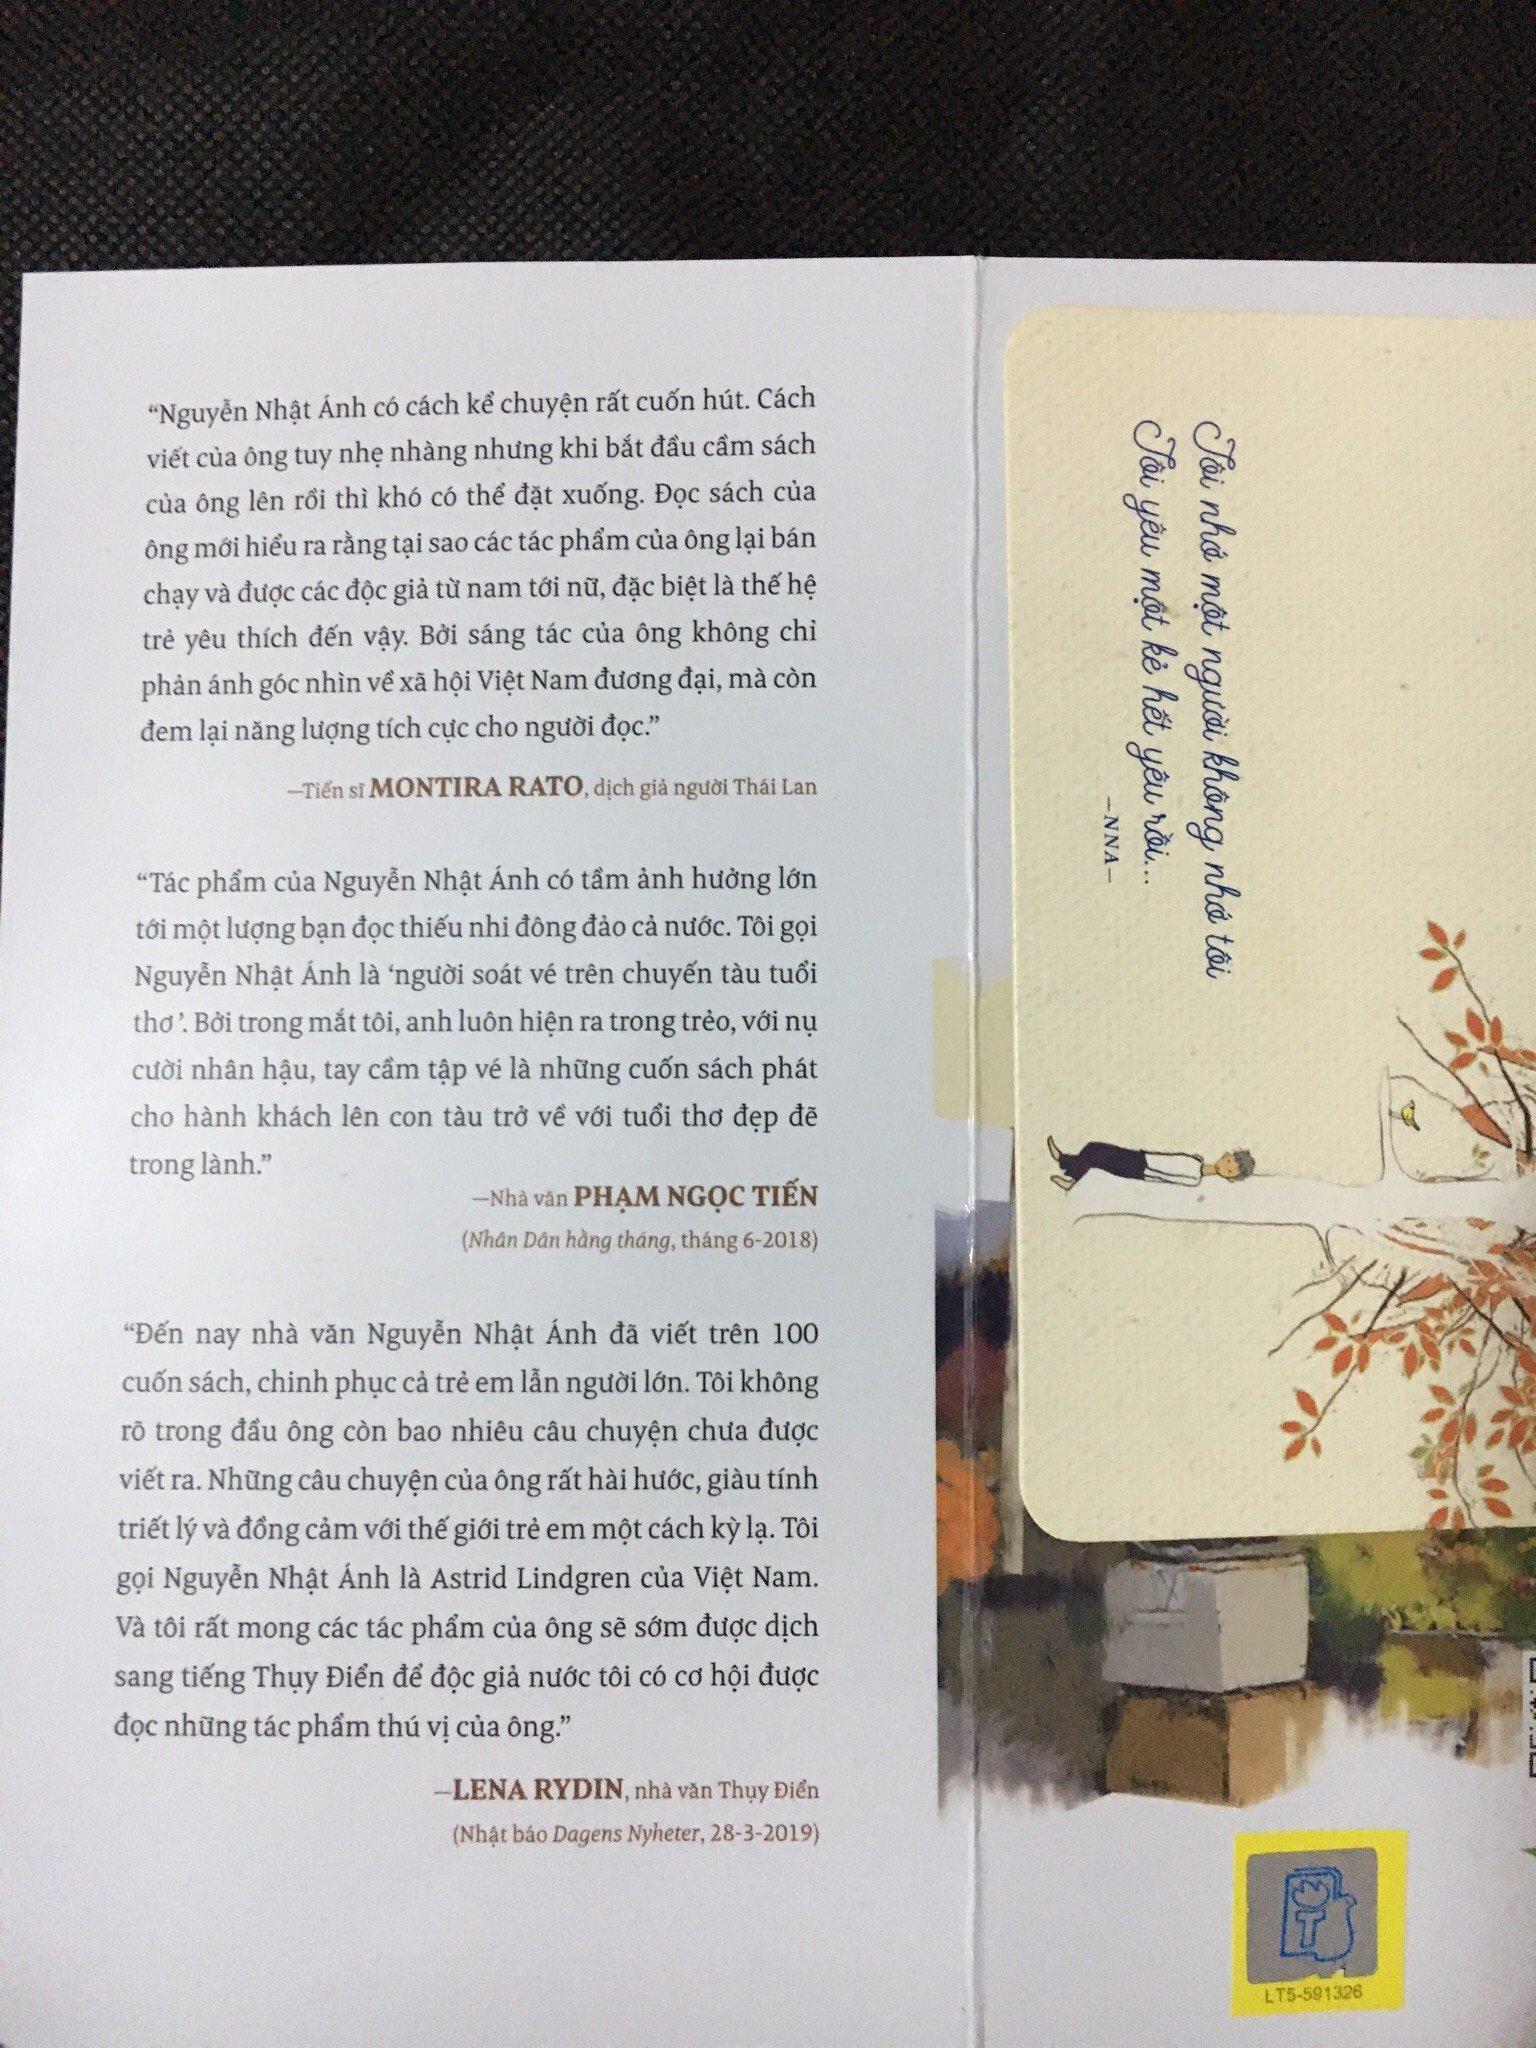 “Nguyễn Nhật Ánh có cách kể chuyện rất cuốn hút. Cách
viết của ông tuy nhẹ nhàng nhưng khi bắt đầu cầm sách
của ông lên rồi thì khó có thể đặt xuống. Đọc sách của
ông mới hiểu ra rằng tại sao các tác phẩm của ông lại bán
chạy và được các độc giả từ nam tới nữ, đặc biệt là thế hệ
trẻ yêu thích đến vậy. Bởi sáng tác của ông không chỉ
phản ánh góc nhìn về xã hội Việt Nam đương đại, mà còn
đem lại năng lượng tích cực cho người đọc.”
—Tiến sĩ MONTIRA RATO, dịch giả người Thái Lan
“Tác phẩm của Nguyễn Nhật Ánh có tầm ảnh hưởng lớn
tới một lượng bạn đọc thiếu nhi đông đảo cả nước. Tôi gọi
Nguyễn Nhật Ánh là ‘người soát vé trên chuyến tàu tuổi
thơ’. Bởi trong mắt tôi, anh luôn hiện ra trong trẻo, với nụ
cười nhân hậu, tay cầm tập vé là những cuốn sách phát
cho hành khách lên con tàu trở về với tuổi thơ đẹp đẽ
trong lành.”
—Nhà văn PHẠM NGỌC TIẾN
(Nhân Dân hằng tháng, tháng 6-2018)
“Đến nay nhà văn Nguyễn Nhật Ánh đã viết trên 100
cuốn sách, chinh phục cả trẻ em lẫn người lớn. Tôi không
rõ trong đầu ông còn bao nhiêu câu chuyện chưa được
viết ra. Những câu chuyện của ông rất hài hước, giàu tính
triết lý và đồng cảm với thế giới trẻ em một cách kỳ lạ. Tôi
gọi Nguyễn Nhật Ánh là Astrid Lindgren của Việt Nam.
Và tôi rất mong các tác phẩm của ông sẽ sớm được dịch
sang tiếng Thụy Điển để độc giả nước tôi có cơ hội được
đọc những tác phẩm thú vị của ông.”
—LENA RYDIN, nhà văn Thụy Điển
(Nhật báo Dagens Nyheter, 28-3-2019)
Tôi nhớ một người không nhớ tôi
Tôi yêu một kẻ hết yêu rồi...
—NNA—
T
LT5-591326